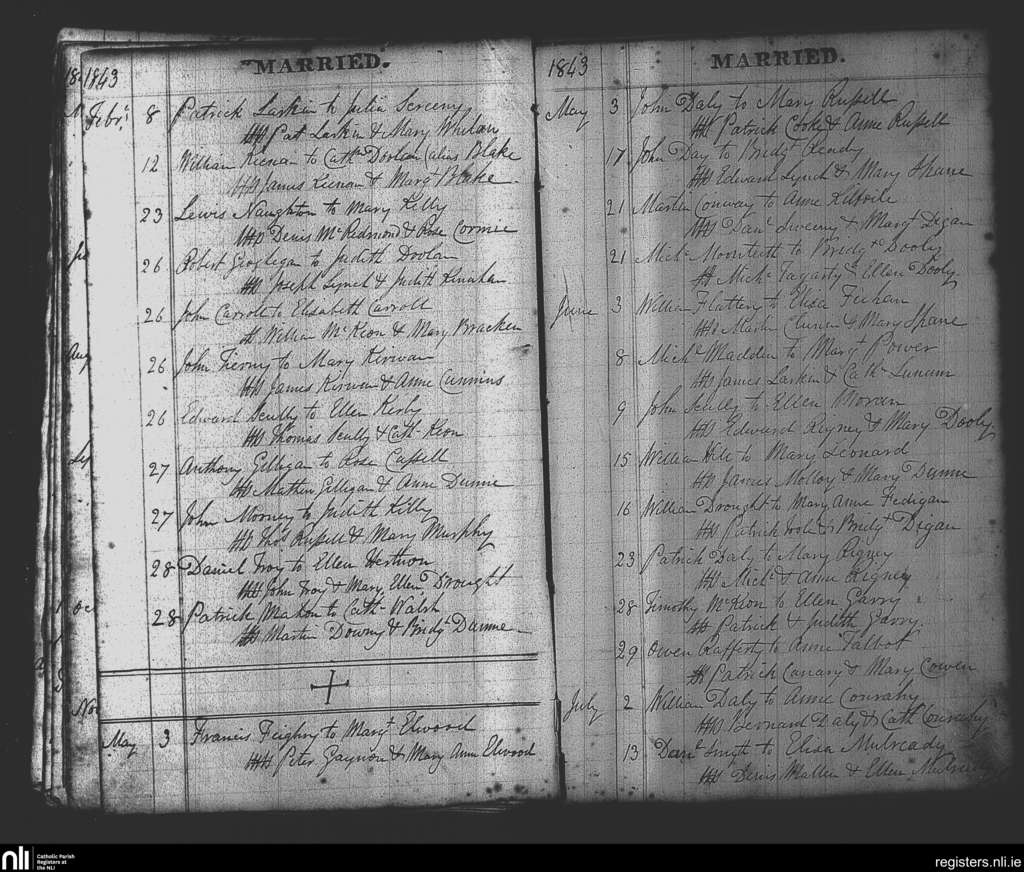 MARRIED.
1843
Febr. 8 Patrick Larkin to Julia Sweeny
Pat Larkin & Mary Whelan
12 William Kienan to Cathe Doolan (alias Blake
James Kienan & Margt Blake
23 Lewis Naughton to Mary Kelly
Denis McRedmond & Rose Cormie
26 Robert Geoghegan to Judith Doolan
Joseph Lynch & Judith Kinahan
26 John Carroll to Elisabeth Carroll
William McKeon & Mary Bracken
26 John Tierny to Mary Kirwan
James Kirwan & Anne Cummins
26 Edward Scully to Ellen Kerby
Thomas Scully & Cath. Keon
27 Anthony Gilligan to Rose Cassell
Mathew Gilligan & Anne Dunne
27 John Mooney to Judith Kelly
Thos Russell & Mary Murphy
28 Daniel Troy to Ellen
John Troy & Mary Ellen Drought
28 Patrick Mahon to Cathe Walsh
Martin Downy & Bridgt Dunne
May 3 Francis Feighny to Margt Elwood
Peter Gaynon & Mary Anne Elwood
1843
MARRIED.
May 3 John Daly to Mary Russell
Patrick Cooke & Anne Russell
17 John Day to Bridgt Kendy
Edward Lynch & Mary Spane
21 Martin Conway to Anne Kilbride
Danl Sweeny & Margt Digan
21 Michl to Bridgt Dooly
Michl Fagarty & Ellen Dooly
June 3 William Flattery to Elisa Feehan
Martin & Mary Spane
8 Michl Madden to Margt Power
James Larkin & Cathe
9 John Scully to Ellen Moran
Edward Rigney & Mary Dooly
15 William to Mary Leonard
James Molloy & Mary Dunne
16 William Drought to Mary Anne Fedigan
Patrick & Bridgt Digan
23 Patrick Daly to Mary Rigney
Michl & Anne Rigney
28 Timothy McKeon to Ellen Garry
Patrick & Judith Garry
29 Owen Rafferty to Anne Talbot
Patrick Canary & Mary Cowen
July 2 William Daly to Anne Conrahy
Bernard Daly & Cath Conrahy
13 Danl Smyth to Elisa Mulready
Denis Mallen & Ellen
nli Catholic Parish
Registers at
the NLI
registers.nli.ie